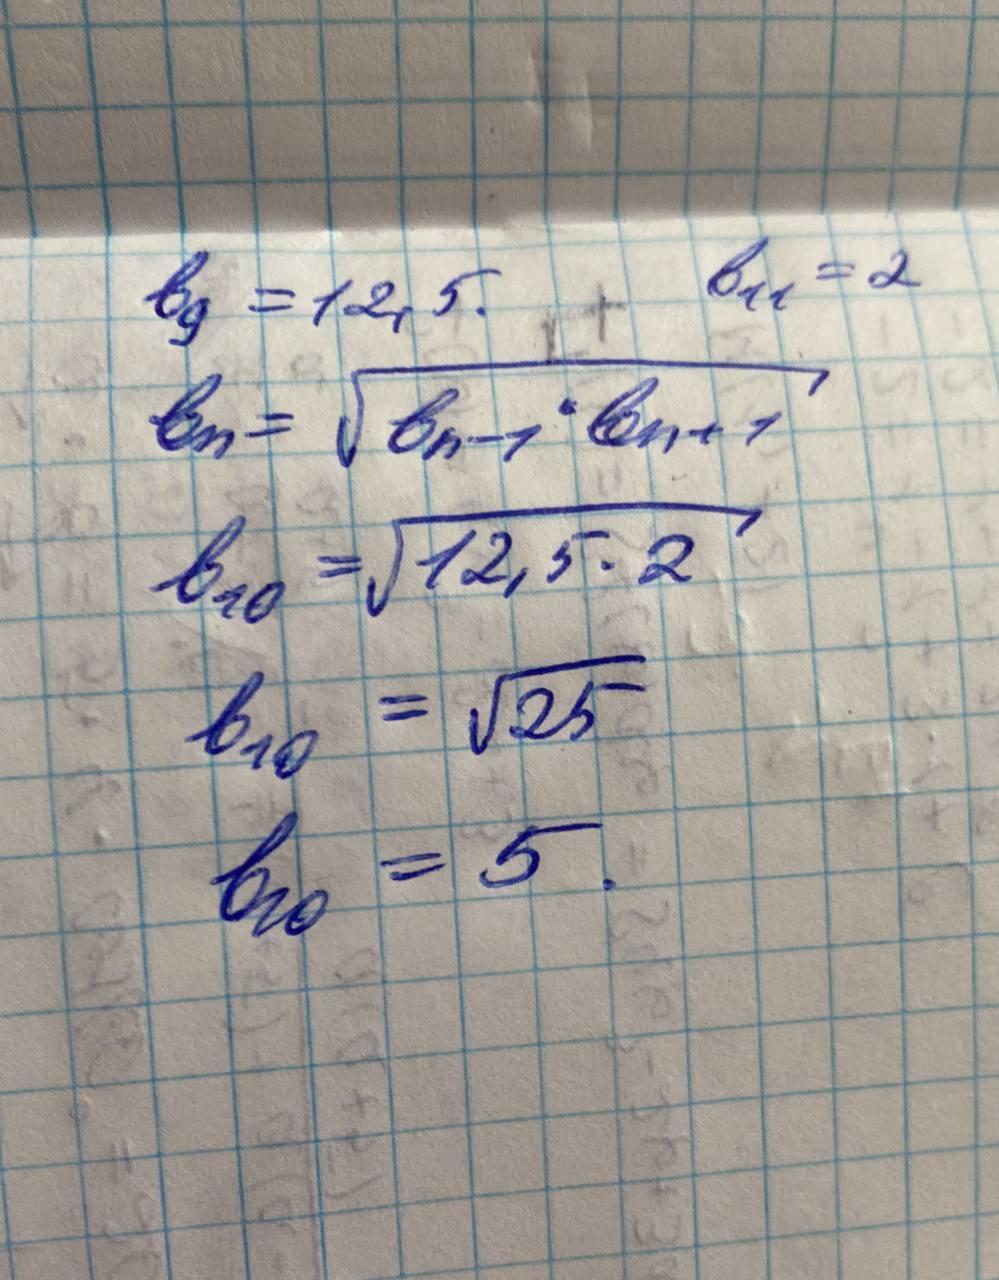 b₉ = 12,5. b₁₁ = 2
bₙ = √(bₙ₋₁ · bₙ₊₁)
b₁₀ = √(12,5 · 2)
b₁₀ = √25
b₁₀ = 5.